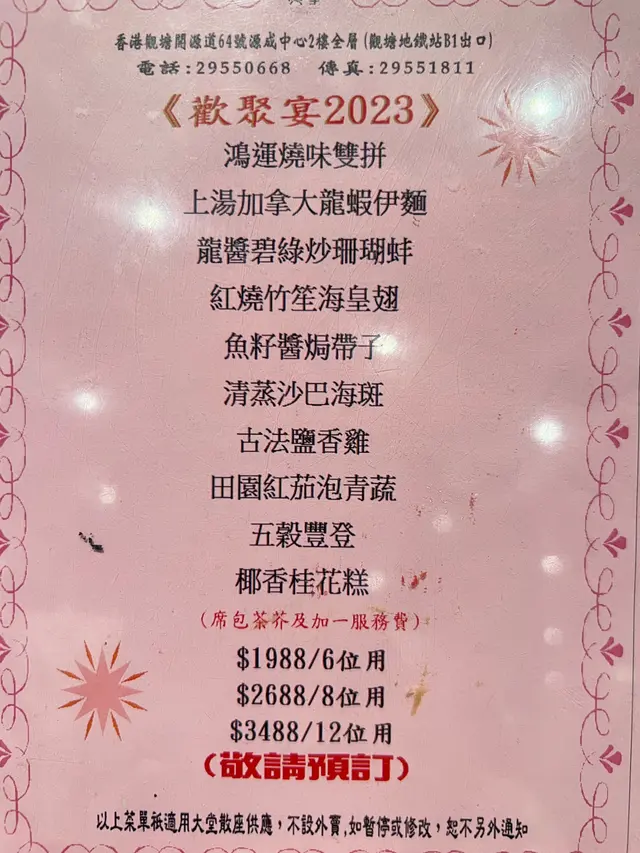 香港觀塘開源道64號源成中心2樓全層(觀塘地鐵站B1出口)
電話:29550668 傳真:29551811
《歡聚宴2023》
鴻運燒味雙拼
上湯加拿大龍蝦伊麵
龍醬碧綠炒珊瑚蚌
紅燒竹笙海皇翅
魚籽醬焗帶子
清蒸沙巴海斑
古法鹽香雞
田園紅茄泡青蔬
五穀豐登
椰香桂花糕
(席包茶芥及加一服務費)
$1988/6位用
$2688/8位用
$3488/12位用
(敬請預訂)
以上菜單祇適用大堂散座供應，不設外賣,如暫停或修改，恕不另外通知